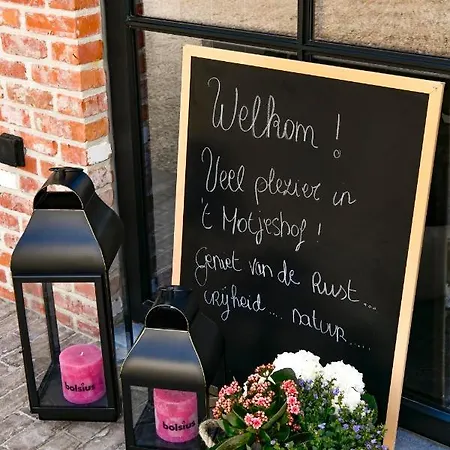 Welkom !
Veel plezier in
't Motjeshof !
Geniet van de Rust ...
vrijheid .... natuur .....
bolsius
bolsius